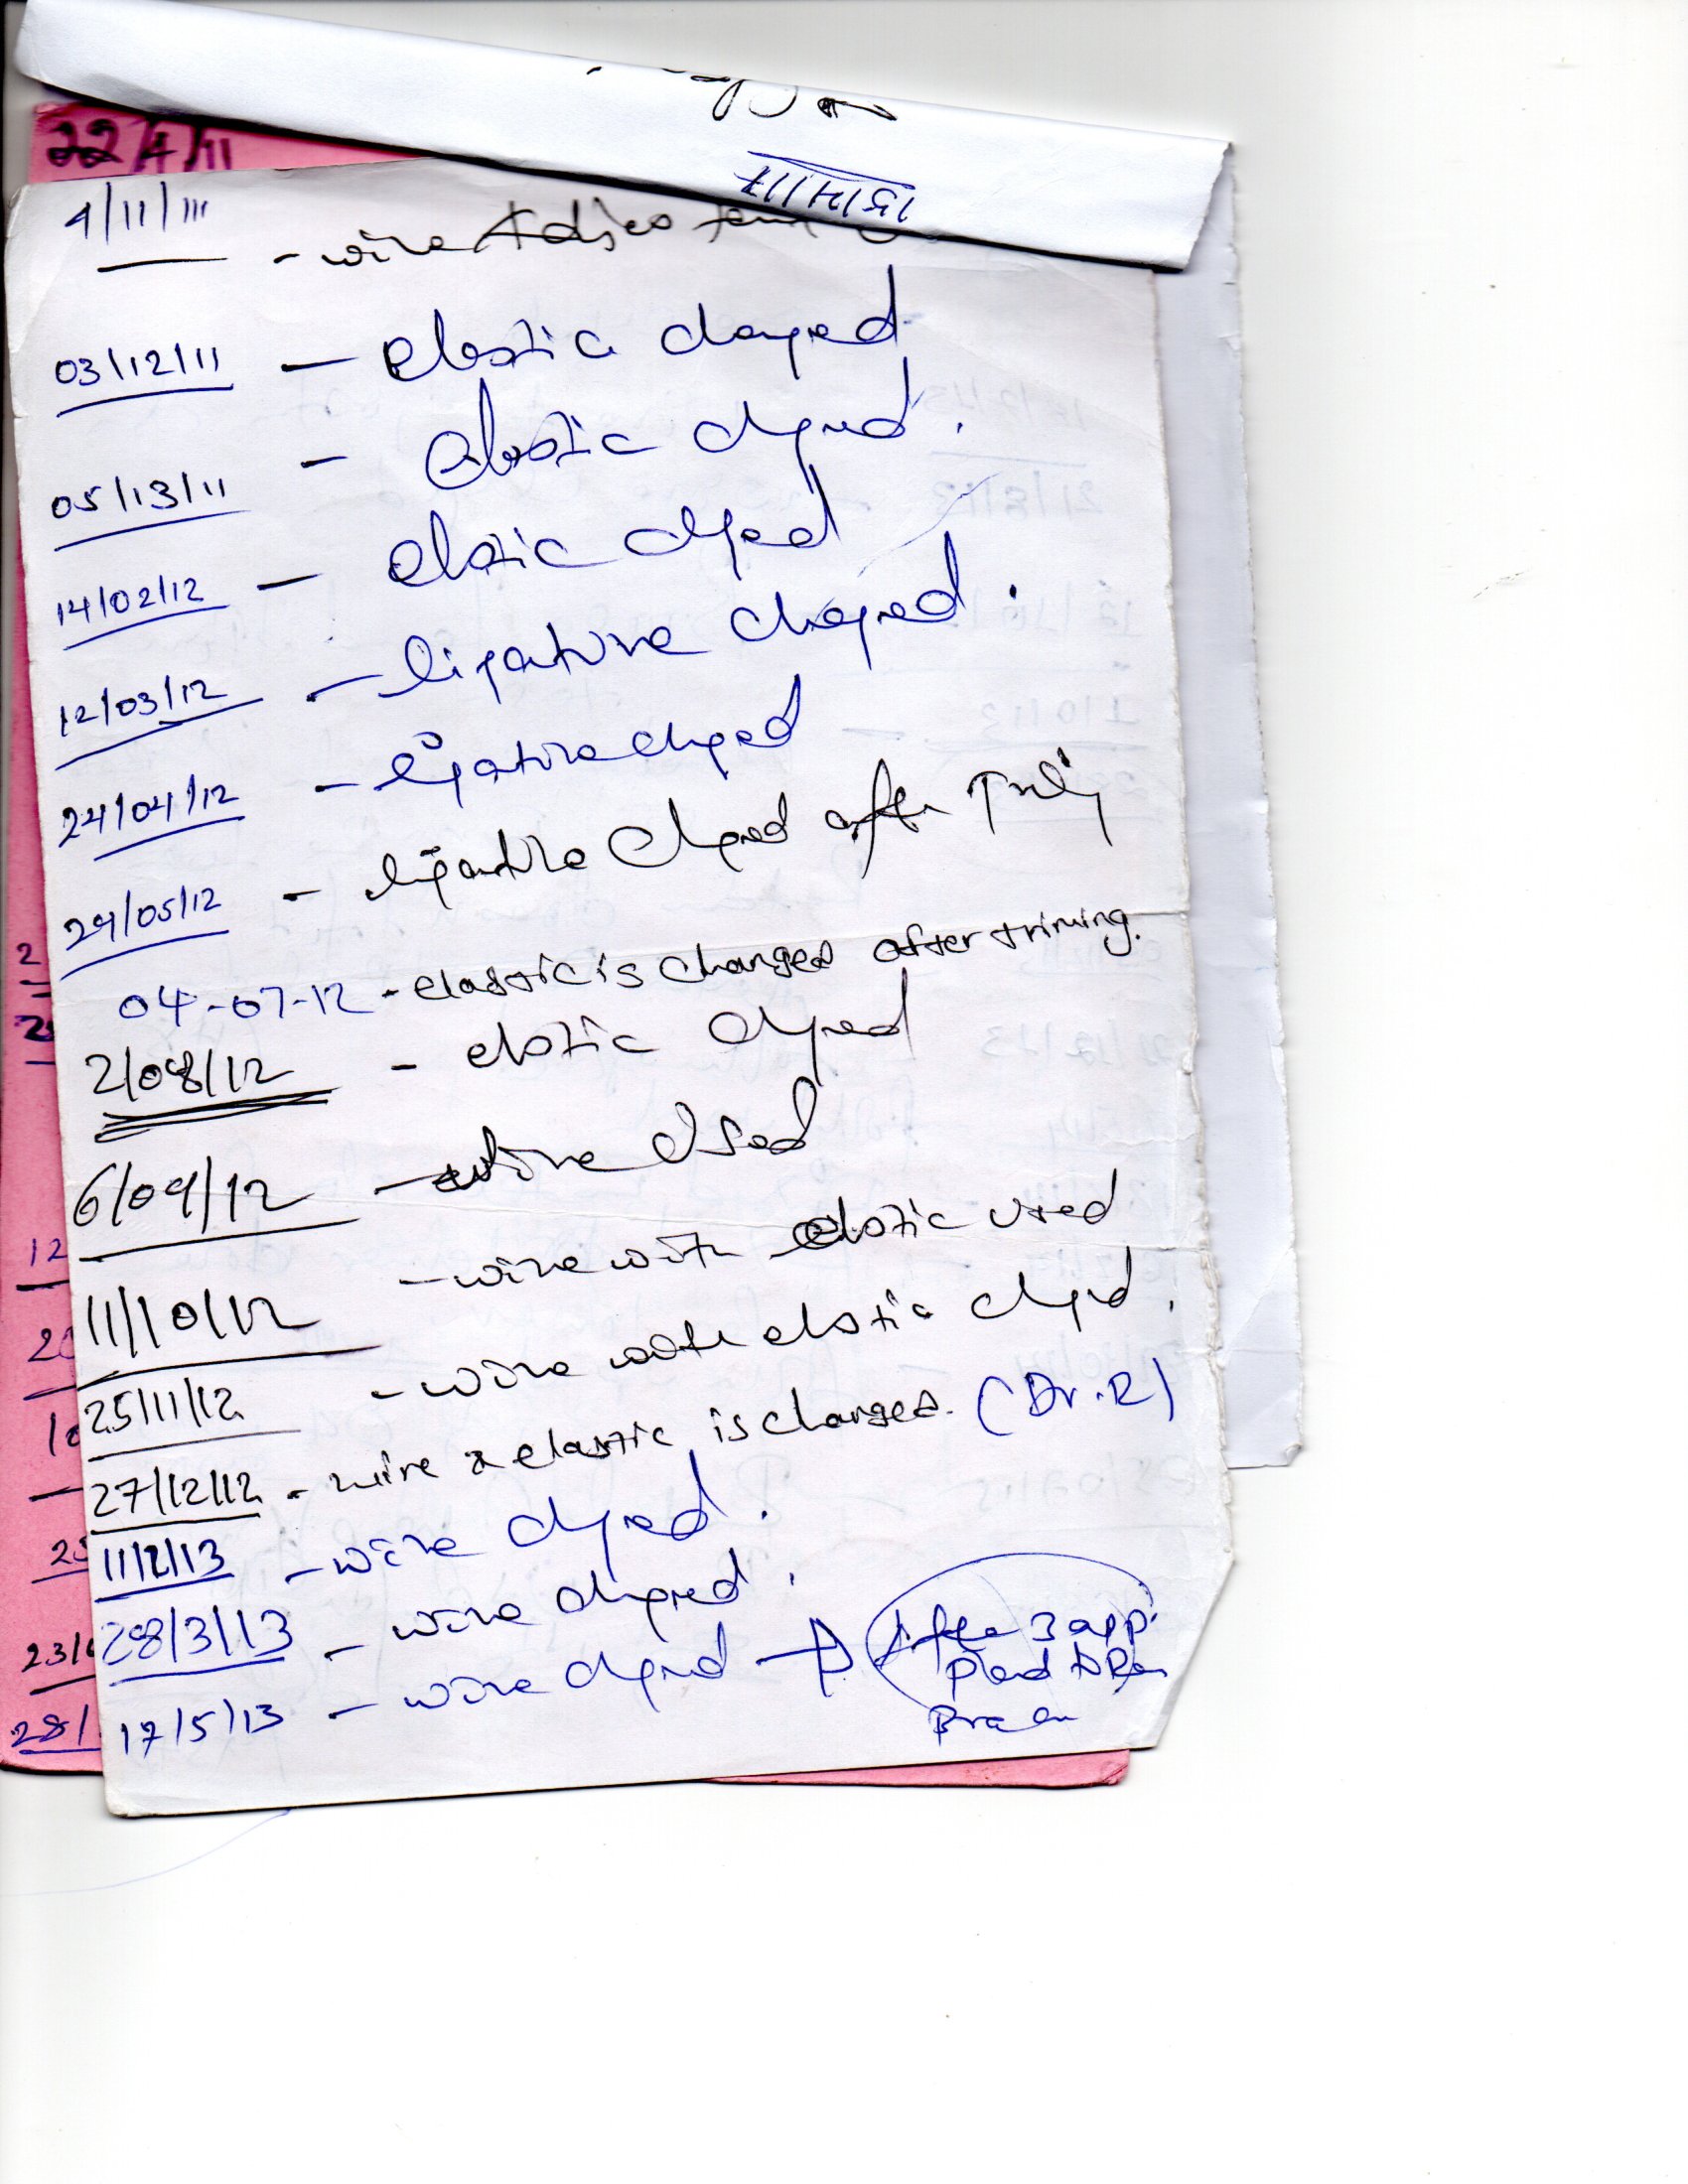 15/4/17
22/4/11
4/11/11 - wire
03/12/11 - elastic changed
05/13/11 - elastic changed.
14/02/12 - elastic changed
12/03/12 - ligature changed.
24/04/12 - ligature changed
29/05/12 - ligature changed after
04-07-12 - elastic is changed after triming.
2/08/12 - elastic changed
6/09/12 - wire used
11/10/12 - wire with elastic used
25/11/12 - wire with elastic changed.
27/12/12 - wire & elastic is changed. (Dr.R)
11/2/13 - wire changed.
28/3/13 - wire changed.
17/5/13 - wire changed → After 3 app.